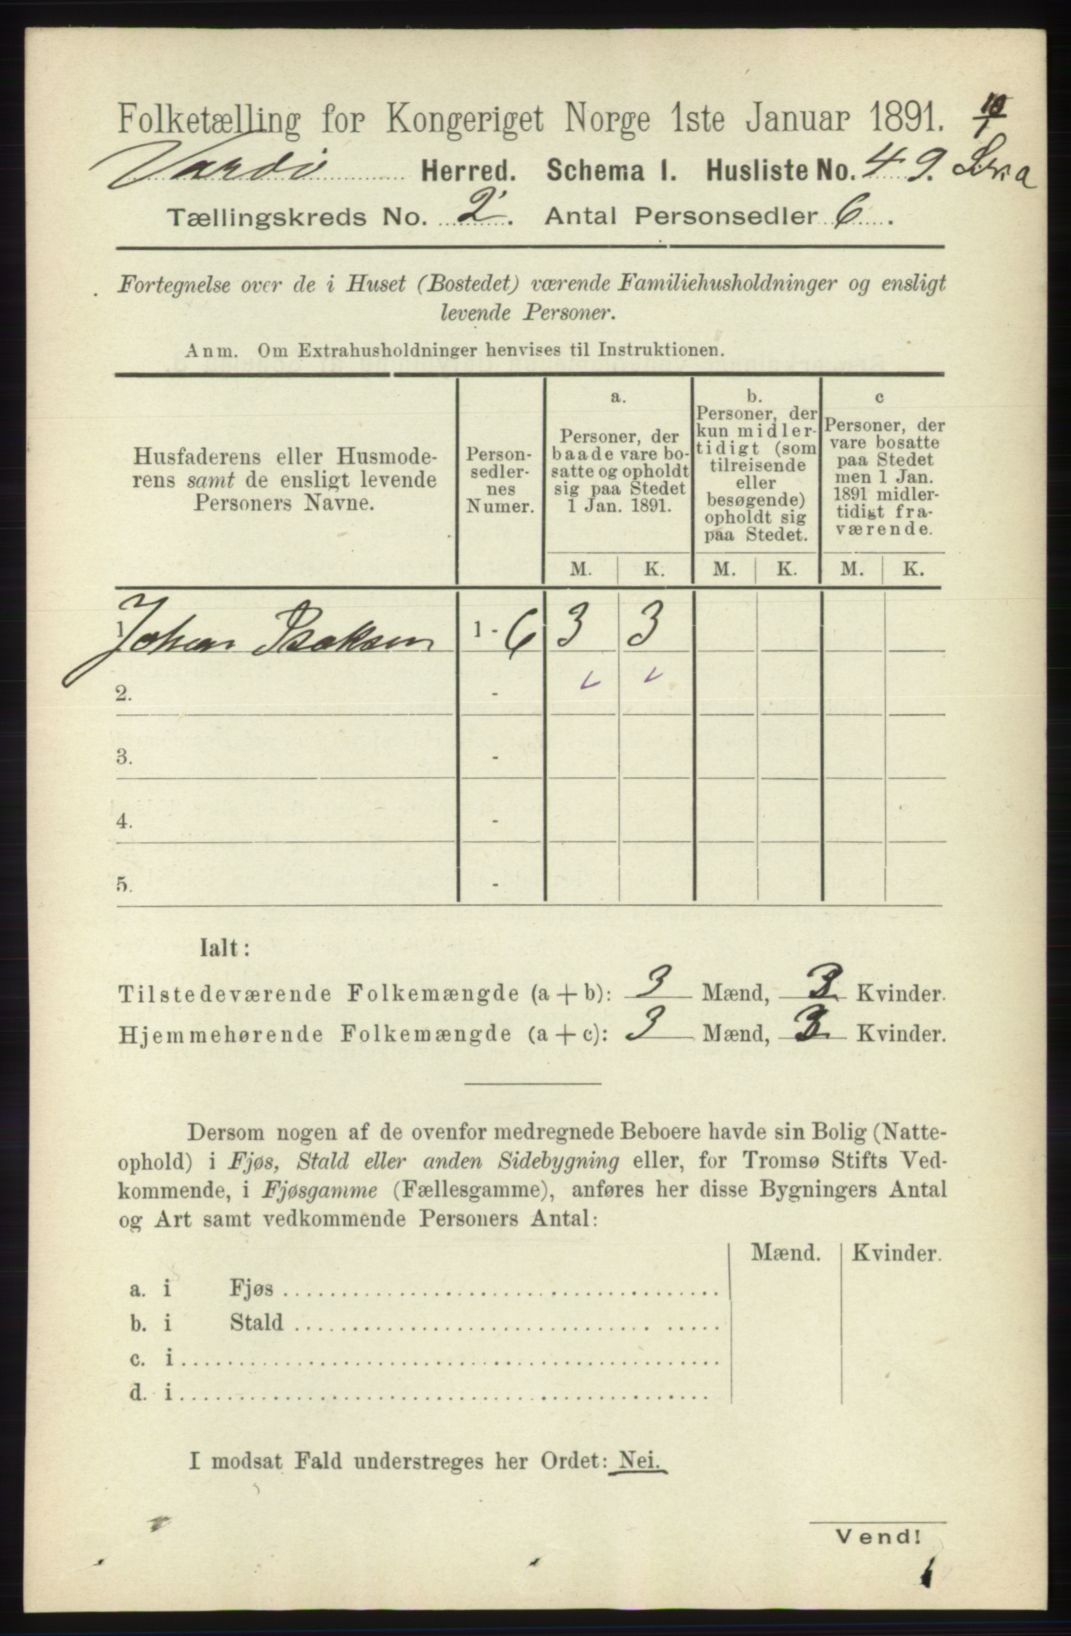 Folketælling for Kongeriget Norge 1ste Januar 1891. 10/1
Vardø Herred. Schema I. Husliste No. 49.
Tællingskreds No. 2. Antal Personsedler 6.
Fortegnelse over de i Huset (Bostedet) værende Familiehusholdninger og ensligt
levende Personer.
Anm. Om Extrahusholdninger henvises til Instruktionen.
Husfaderens eller Husmode-
rens samt de ensligt levende
Personers Navne.
Person-
sedler-
nes
Numer.
a.
Personer, der
baade vare bo-
satte og opholdt
sig paa Stedet
1 Jan. 1891.
b.
Personer, der
kun midler-
tidigt (som
tilreisende
eller
besøgende)
opholdt sig
paa Stedet.
c
Personer, der
vare bosatte
paa Stedet
men 1 Jan.
1891 midler-
tidigt fra-
værende.
M. K. M. K. M. K.
1. Johan Isaksen 1 - 6 3 3
2. -
3. -
4. -
5. -
Ialt:
Tilstedeværende Folkemængde (a + b): 3 Mænd, 3 Kvinder.
Hjemmehørende Folkemængde (a + c): 3 Mænd, 3 Kvinder.
Dersom nogen af de ovenfor medregnede Beboere havde sin Bolig (Natte-
ophold) i Fjøs, Stald eller anden Sidebygning eller, for Tromsø Stifts Ved-
kommende, i Fjøsgamme (Fællesgamme), anføres her disse Bygningers Antal
og Art samt vedkommende Personers Antal:
Mænd. Kvinder.
a. i Fjøs
b. i Stald
c. i
d. i
I modsat Fald understreges her Ordet: Nei.
Vend!